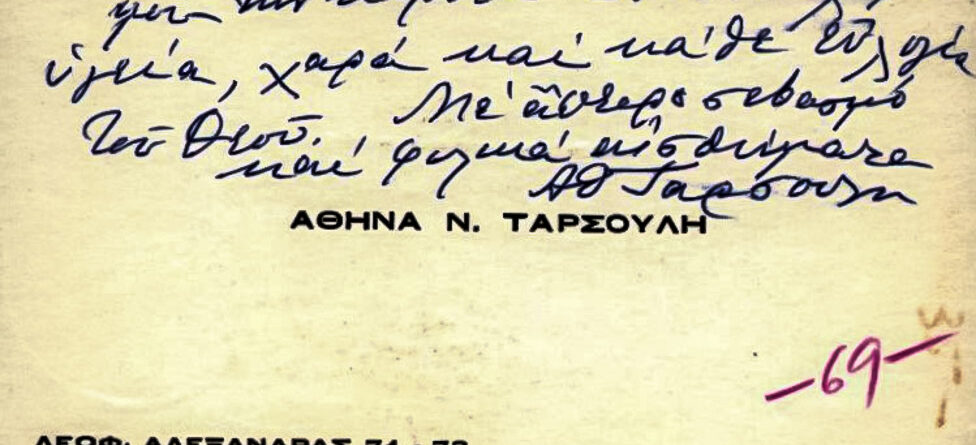 ὑγεία, χαρά καί κάθε εὐλογία
τοῦ Θεοῦ. Μέ ἄπειρο σεβασμό
καί φιλικά αἰσθήματα
Αθ Ταρσούλη
ΑΘΗΝΑ Ν. ΤΑΡΣΟΥΛΗ
-69-
ΛΕΩΦ. ΑΛΕΞΑΝΔΡΑΣ 74 - 78